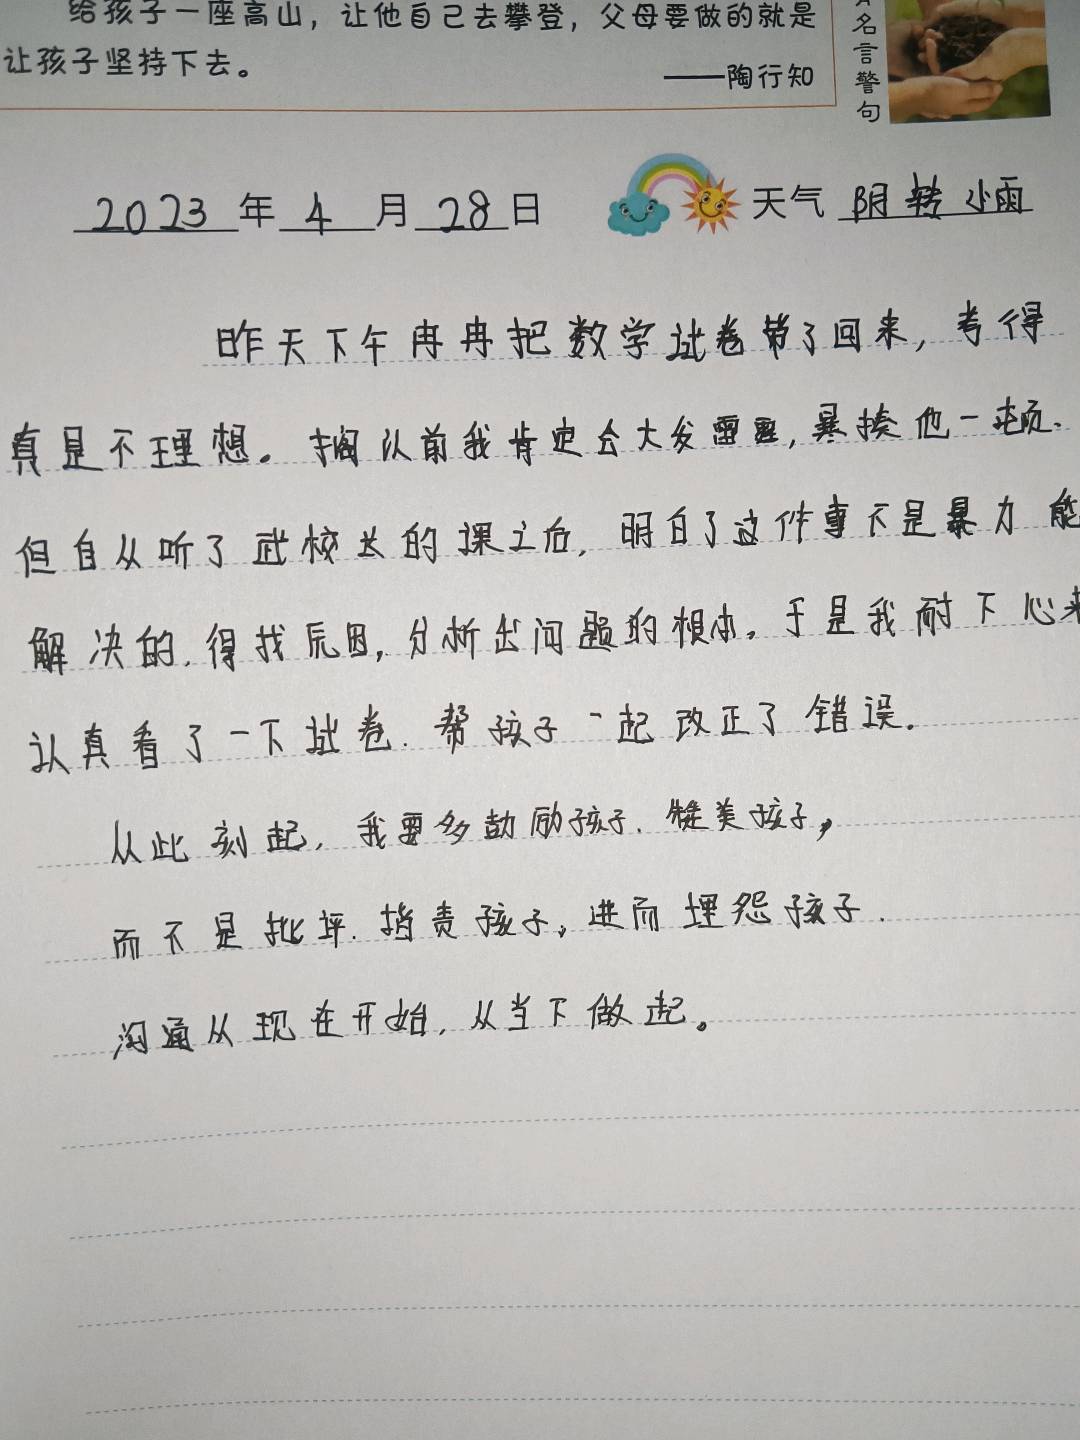 给孩子一座高山，让他自己去攀登，父母要做的就是
让孩子坚持下去。
——陶行知
名言警句
2023年4月28日 天气 阴转小雨
昨天下午冉冉把数学试卷带了回来，考得
真是不理想。搁以前我肯定会大发雷霆，暴揍他一顿.
但自从听了武校长的课之后，明白了这件事不是暴力能
解决的.得找原因，分析出问题的根本。于是我耐下心来
认真看了一下试卷.帮孩子一起改正了错误.
从此刻起，我要多鼓励孩子.赞美孩子，
而不是批评.指责孩子，进而埋怨孩子.
沟通从现在开始，从当下做起。